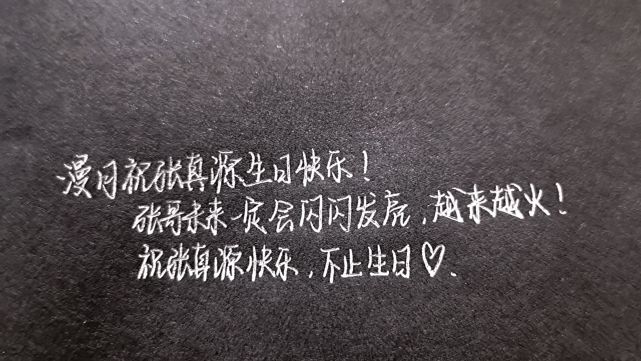 漫月祝张真源生日快乐！
张哥未来一定会闪闪发亮，越来越火！
祝张真源快乐，不止生日♡.